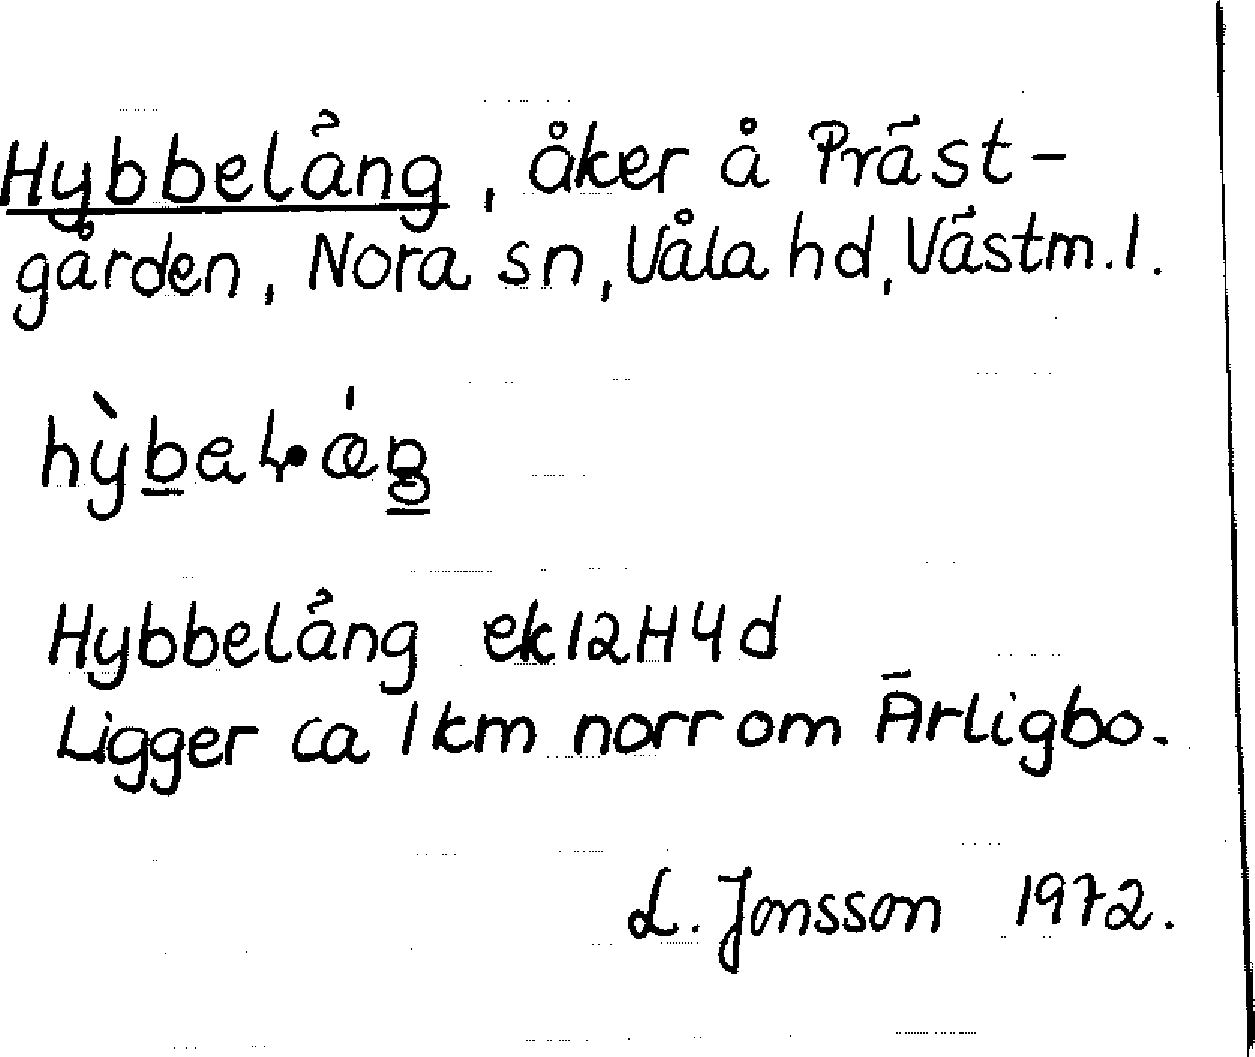 Hybbeläng, åker å Präst-
gården, Nora sn, Våla hd, Västm. l.
Hybbeläng ek 12H4d
Ligger ca 1 km norr om Ärligbo.
L. Jonsson 1972.